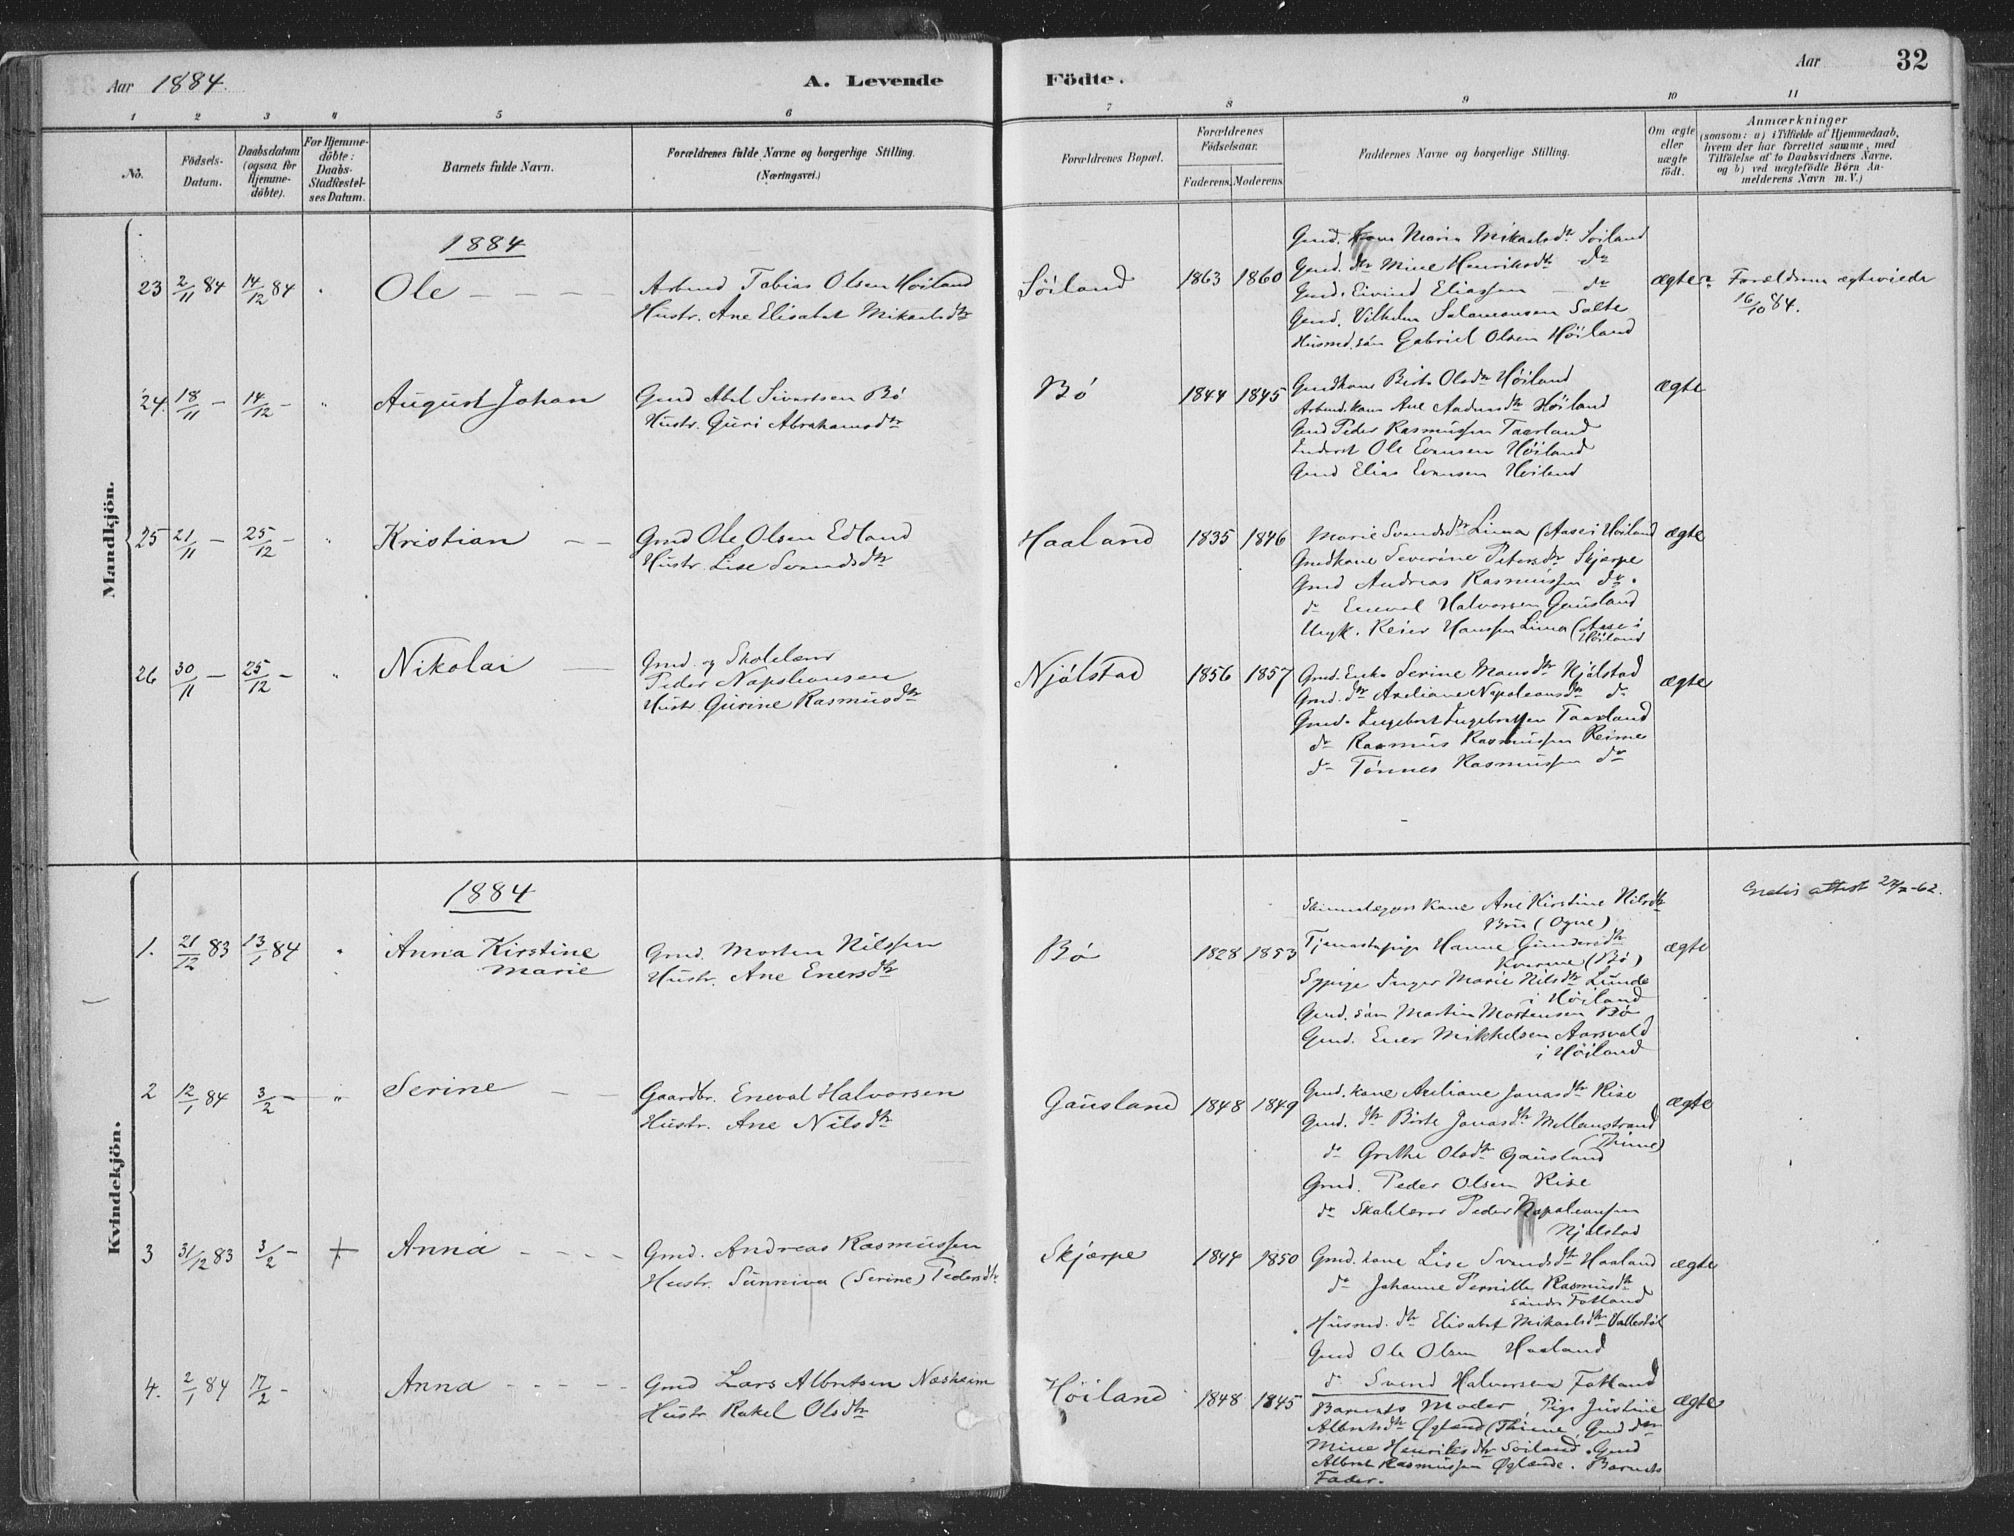 Aar 1884. A. Levende Födte. Aar 32
1 2 3 4 5 6 7 8 9 10 11
No.
Födsels-
Datum.
Daabsdatum
(ogsaa for
Hjemme-
döbte).
For Hjemme-
döbte:
Daabs-
Stadfæstel-
ses Datum.
Barnets fulde Navn.
Forældrenes fulde Navne og borgerlige Stilling.
(Næringsvei.)
Forældrenes Bopæl.
Forældrenes
Födselsaar.
Faderens. Moderens.
Faddernes Navne og borgerlige Stilling.
Om ægte
eller
uægte
födt.
Anmærkninger
(saasom: a) i Tilfælde af Hjemmedaab,
hvem der har forrettet samme, med
Tilföielse af to Daabsvidners Navne,
og b) ved uegtefödte Börn An-
melderens Navn m. V.)
Mandkjön.
1884
23 2/11 84 14/12 84 " Ole
Arbmd Tobias Olsen Höiland
Hustr. Ane Elisabet Mikaelsdtr
Söiland 1863 1860
Gmd. Kone Maria Mikaelsdtr Söiland
Gmd. dtr Mine Henriksdtr do
Gmd. Eivind Eliassen do
Gmd. Vilhelm Salamonsen Salte
Husmd. sön Gabriel Olsen Höiland
ægte Forældrene ægteviede
16/10 84.
24. 18/11 — 14/12 — " August Johan
Gmd Abel Sivertsen Bö
Hustr. Guri Abrahamsdtr
Bö 1844 1845
Gmdkone Birte Olsdtr Höiland
Arbmd. kone Ane Aadnesdtr Höiland
Gmd Peder Rasmussen Taarland
Inderst Ole Evensen Höiland
Gmd Elias Evensen Höiland
ægte
25 21/11 — 25/12 — " Kristian
Gmd Ole Olsen Edland
Hustr. Lise Svendsdtr
Haaland 1835 1846
Marie Svendsdtr Lima (Aase i Höiland
Gmdkone Severine Petersdtr Skjærpe
Gmd Andreas Rasmussen do.
do Eneval Halvorsen Gausland
Ungk. Reier Hanssen Lima (Aase i
Höiland
ægte
26 30/11 — 25/12 — " Nikolai
Gmd. og Skolelærer
Peder Napoleonsen
Hustr. Gurine Rasmusdtr
Njölstad 1856 1857
Gmd. Enke Serine Monsdtr Njölstad
Gmd. dtr Axeliane Napoleonsdtr do
Gmd. Ingebret Ingebretsen Taarland
do Rasmus Rasmussen Reime
do Tönnes Rasmussen do
ægte
Kvindekjön.
1884
1. 21/12 83 13/1 84 " Anna Kirstine
Marie
Gmd. Morten Nilssen
Hustr. Ane Enersdtr
Bö 1828 1853
Kone Ane Kirstine Nilsdtr
Bru (Ogne)
Tjenestepige Hanne Gundersdtr
Kverme (Bö)
Sypige Inger Marie Nilsdtr Lunde
i Höiland
Gmd. sön Martin Mortensen Bö
Gmd. Ener Mikkelsen Aarsvold
i Höiland
ægte attest -62.
2 12/1 84 3/2 — " Serine
Gaardbr. Eneval Halvorsen
Hustr. Ane Nilsdtr
Gausland 1848 1849
Gmd. kone Axeliane Jonasdtr Rise
Gmd. dtr Birte Jonasdtr Mellanstrand
(Thime)
do Grethe Olsdtr Gausland
Gmd. Peder Olsen Rise
do Skolelærer Peder Napoleonsen
Njölstad
ægte
3 31/12 83 3/2 — + Anna
Gmd. Andreas Rasmussen
Hustr. Sunniva (Serine) Pedersdtr
Skjærpe 1844 1850
Gmd. kone Lise Svendsdtr Haaland
do Johanne Pernille Rasmusdtr
söndre Fotland
Husmd. dtr Elisabet Mikaelsdtr Vallestöl
Gmd Ole Olsen Haaland
do Svend Halvorsen Fotland
ægte
4. 2/1 84 17/2 — Anna
Gmd Lars Albretsen Næsheim
Hustr. Rakel Olsdtr
Höiland 1848 1845
Barnets Moder, Pige Justine
Albretsdtr Øgland (Thime, Gmd dtr
Mine Henriksdtr Söiland. Gmd
Albret Rasmussen Øglænde. Barnets
Fader.
ægte